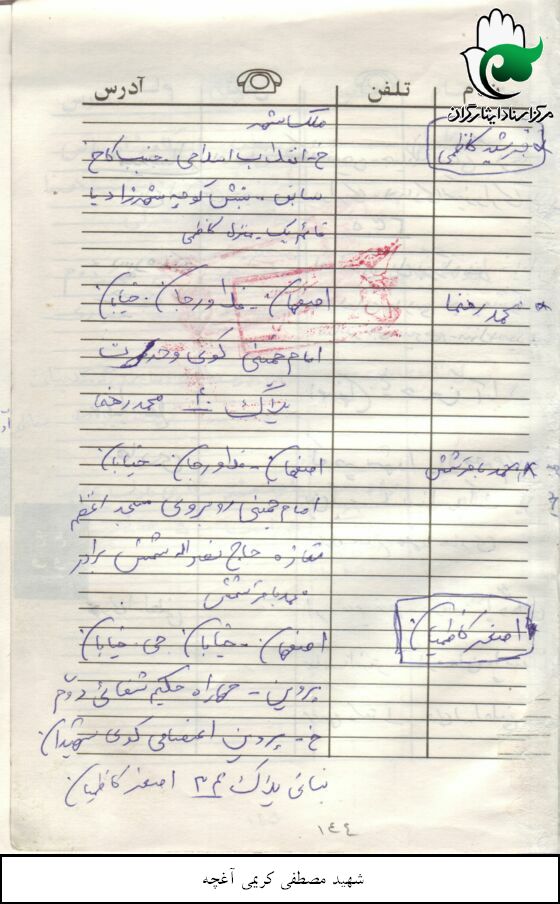 مرکز اسناد ایثارگران
نام تلفن آدرس
کاظمی
ملک شهر
خ - انقلاب اسلامی - جنب کاخ
سابق - نبش کوچه شهرزاد یا
قائم یک - منزل کاظمی
محمد رهنما
اصفهان - فلاورجان - خیابان
امام خمینی کوی وحدت
پلاک محمد رهنما
محمد باقر شمس
اصفهان - فلاورجان - خیابان
امام خمینی روبروی مسجد اعظم
مغازه حاج شمس برادر
محمد باقر شمس
اصغر کاظمیان
اصفهان - خیابان جی خیابان
پروین - چهارراه حکیم شفائی دوم
خ - پروین اعتصامی کوی شهیدان
پلاک اصغر کاظمیان
١٤٤
شهید مصطفی کریمی آغچه